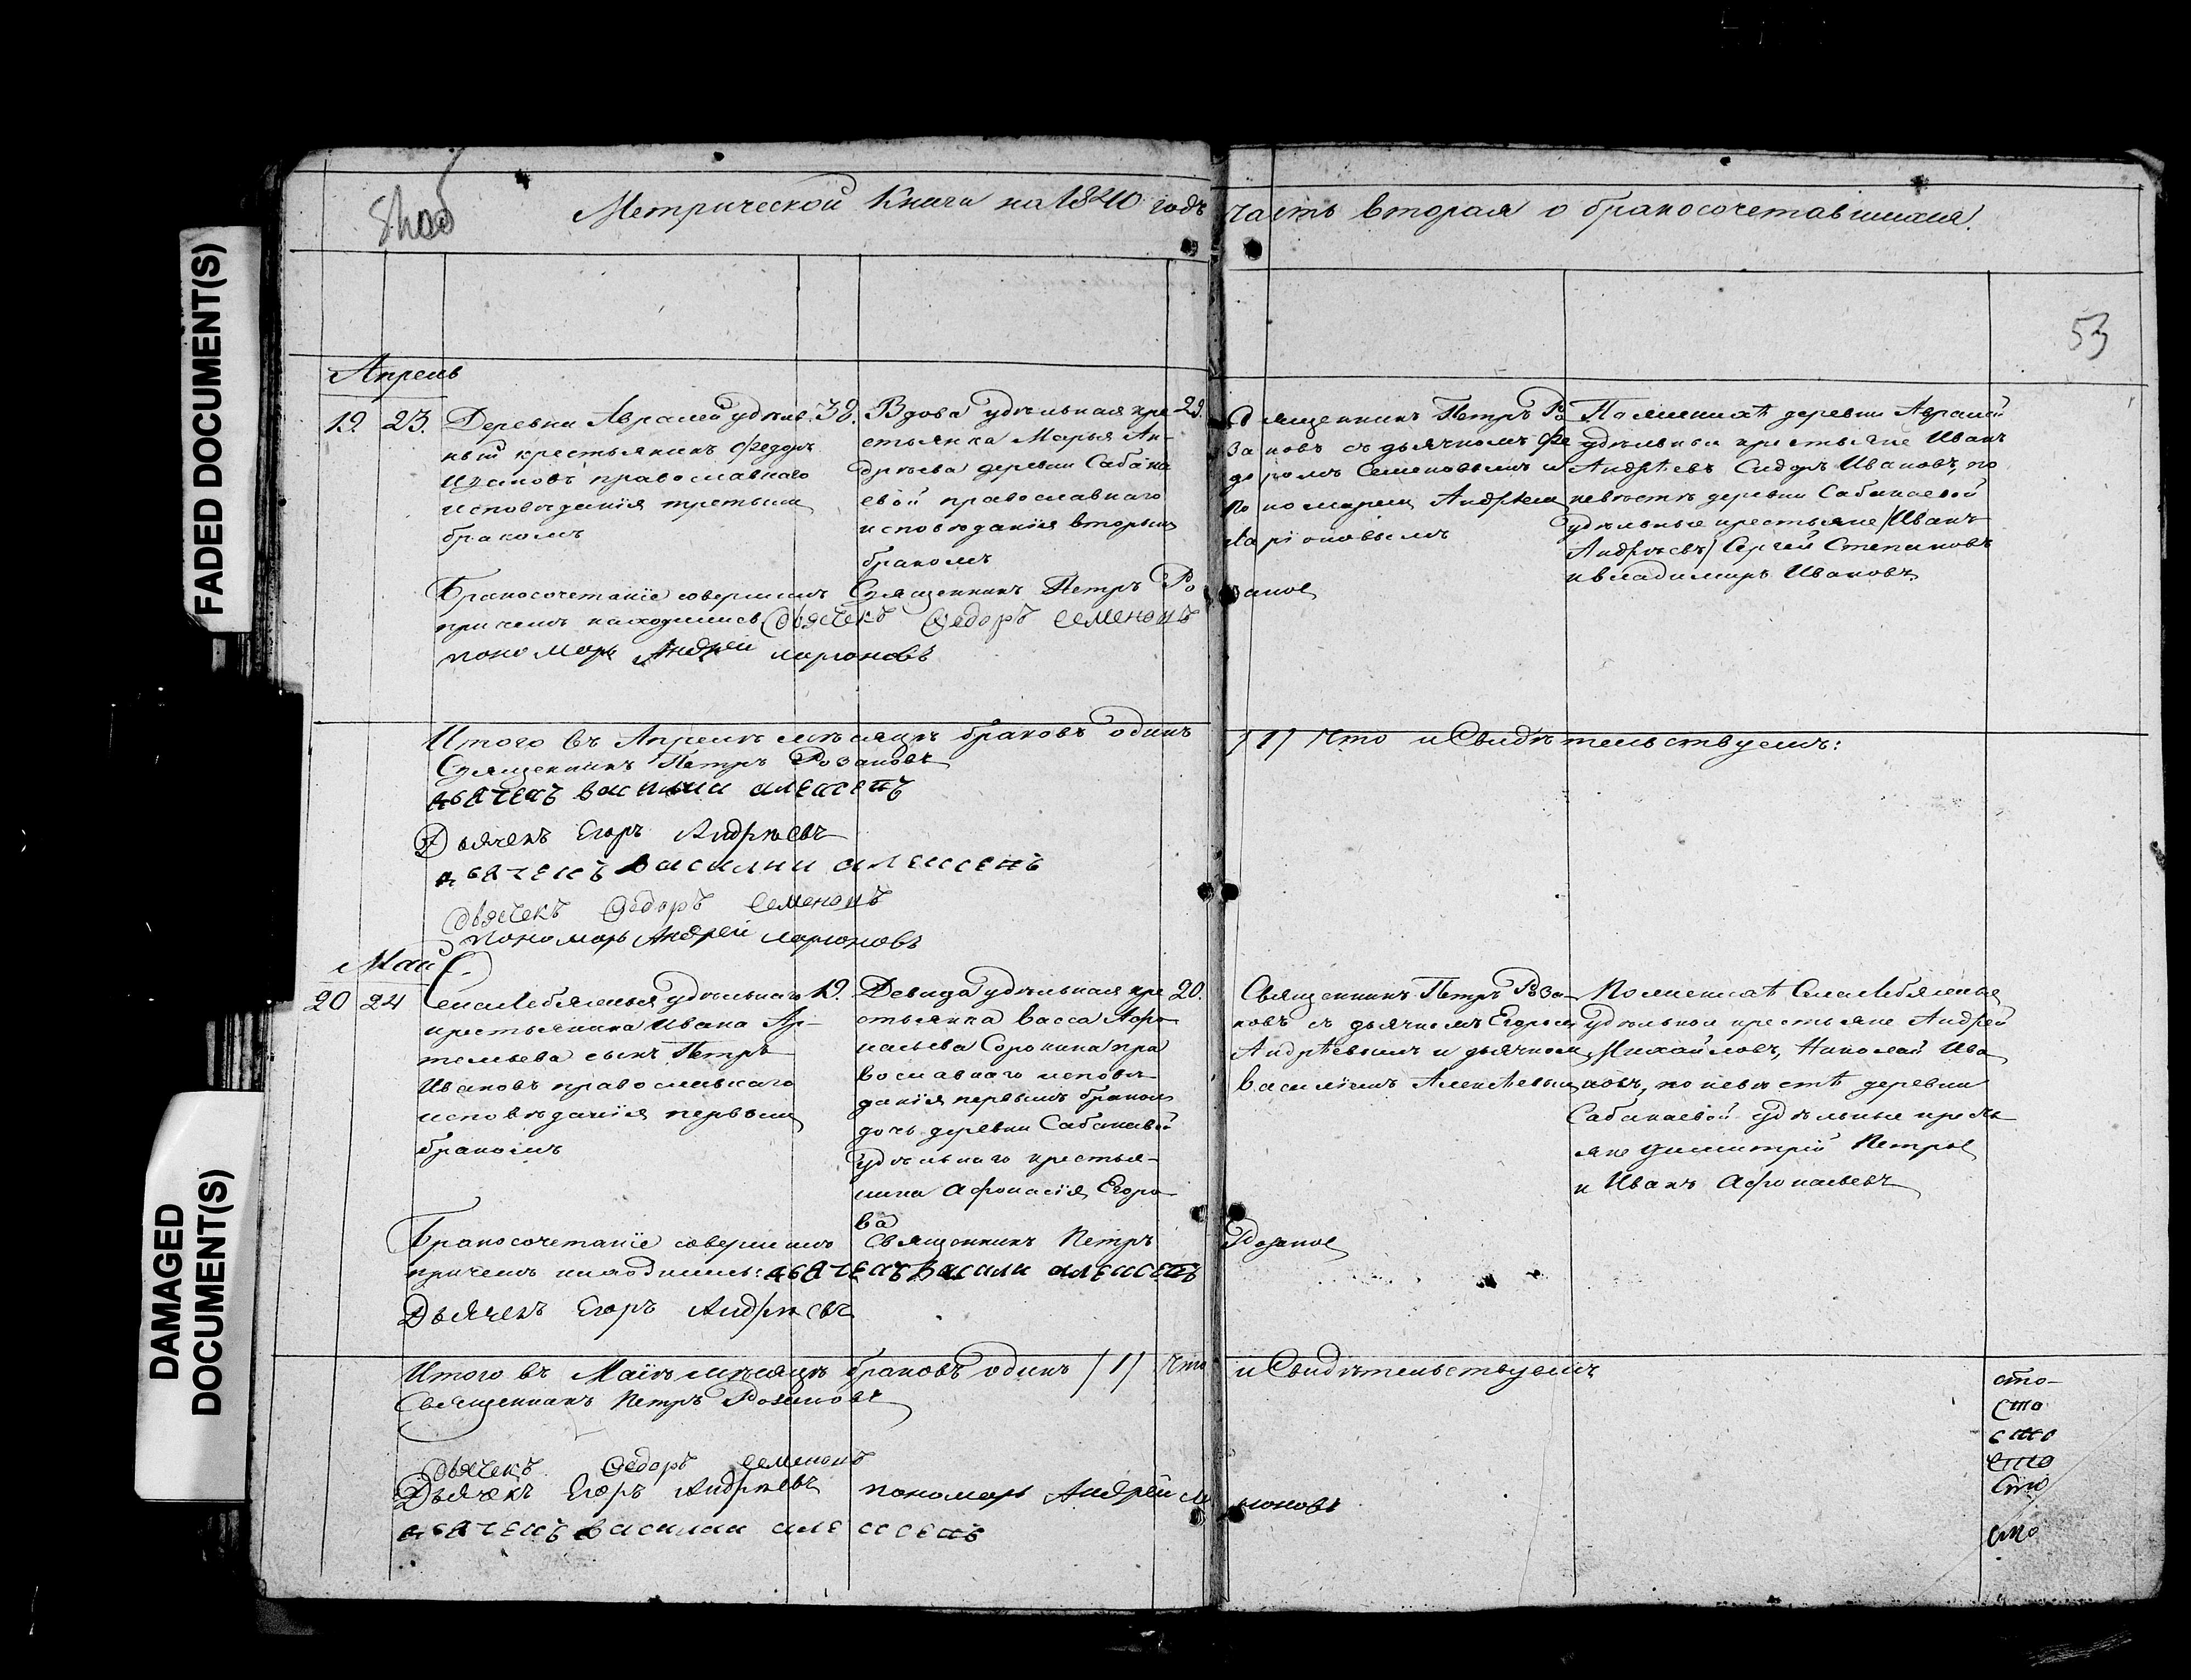 FADED DOCUMENT(S)
DAMAGED DOCUMENT(S)
Метрической Книги на 1840 годъ часть вторая о бракосочетавшихся.
53
Апрель
19. 23.
Деревни Авралей удѣль-
ный крестьянинъ Федоръ
православнаго
исповѣданія третьим
бракомъ
38.
Вдова удѣльная кре
стьянка Марья Ан-
дрѣева деревни Сабана
евой православнаго
исповѣданія вторым
бракомъ
29.
Священникъ Петръ Ро
зановъ съ дьячкомъ Фе
доромъ Семеновымъ и
пономарем Андреем
Ларіоновымъ
По женихѣ деревни Авралей
удѣльныи крестьяне Иванъ
Андрѣевъ Сидоръ Ивановъ, по
невѣстѣ деревни Сабанаевой
удѣльные крестьяне /Иванъ
Андрѣевъ/ Сергей Степановъ
и владимиръ Ивановъ
Бракосочетаніе совершилъ Священникъ Петръ Розанов
при чемъ находились Дьячекъ Федоръ Семеновъ
пономарь Андрей Ларионовъ
Итого въ Апрелѣ мѣсяцѣ браковъ одинъ /1/ Что и Свидѣтельствуемъ:
Священникъ Петръ Розановъ
дьячекъ васили алексеевъ
Дьячекъ Егоръ Андрѣевъ
дьячекъ василии алексеевъ
Дьячекъ Федоръ Семеновъ
Пономарь Андрей Ларионовъ
Май
20 24
Села Лебяжья удѣльнаго
крестьянина Ивана Ар-
темьева сынъ Петръ
Ивановъ православнаго
исповѣданія первым
бракомъ
19.
Девица удѣльная кре
стьянка Васса Афо-
насьева Сорокина пра
вославнаго исповѣ-
данія первымъ браком
дочь деревни Сабанаевой
удѣльнаго крестья-
нина Афонасія Егоро-
ва
20.
Священникъ Петръ Роза-
новъ съ дьячкомъ Егором
Андрѣевымъ и дьячком
Василіемъ Алексѣевым
По женихѣ Села Лебяжья
удѣльнои крестьяне Андрей
Михайловъ, Николай Ива
новъ, по невѣстѣ деревни
Сабанаевой удѣльные кресть
яне Димитрій Петров
и Иванъ Афонасьевъ
Бракосочетаніе совершилъ Священникъ Петръ Розанов
причемъ находились: дьячекъ васили алексеевъ
Дьячекъ Егоръ Андрѣевъ
Итого въ Маіѣ мѣсяцѣ браковъ одинъ /1/ Что и Свидѣтельствуемъ
Священникъ Петръ Розановъ
Дьячекъ Федоръ Семеновъ
Дьячекъ Егоръ Андрѣевъ пономарь Андрей Ларионовъ
дьячекъ василии алексеевъ
сто-
сто
сто
сто
сто
сто